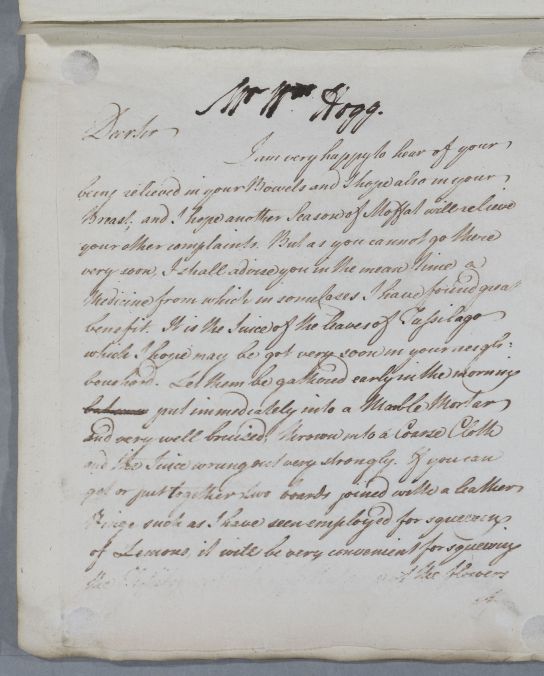 Mr Wm Hogg.
Dear Sir
I am very happy to hear of your
being relieved in your Bowels and I hope also in your
Breast, and I hope another Season of Moffat will relieve
your other complaints. But as you cannot go there
very soon, I shall advise you in the mean time a
Medicine from which in some Cases I have found great
benefit. It is the Juice of the leaves of Tussilago
which I hope may be got very soon in your neigh:
bourhood. Let them be gathered early in the morning
put immediately into a Marble Mortar
and very well bruised, thrown into a Coarse Cloth
and the Juice wrung out very strongly. If you can
get or put together two boards joined with a leather
Hinge such as I have seen employed for squeezing
of Lemons it will be very convenient for squeezing
the of the flowers